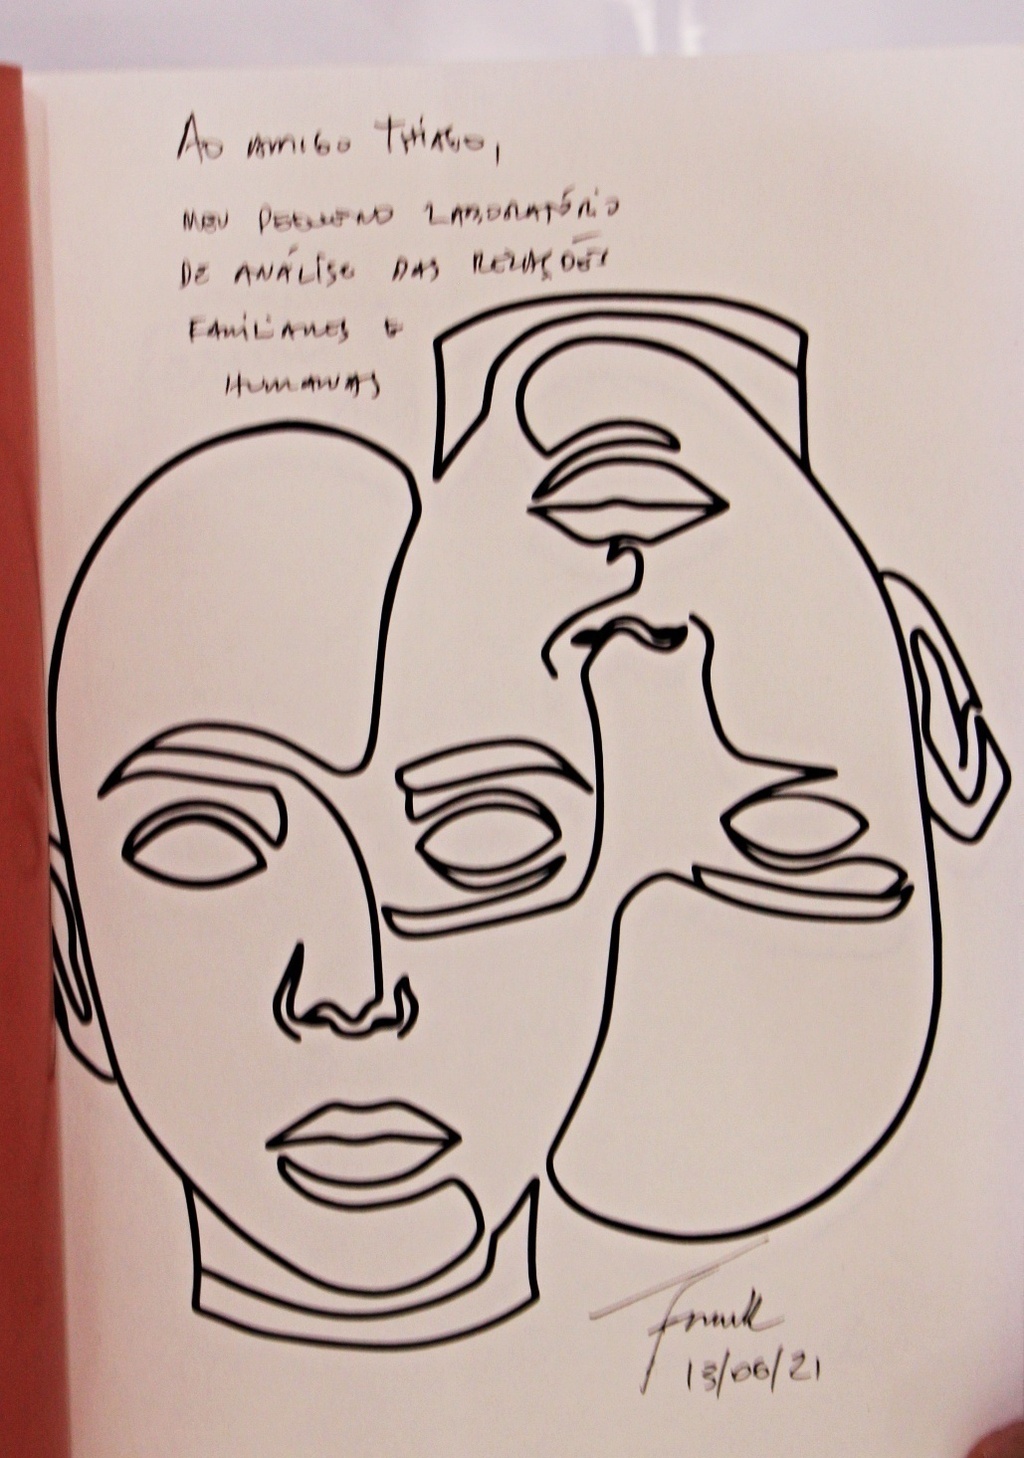 Ao amigo Thiago,
meu pequeno laboratório
de análise das relações
familiares e
humanas
Frank
13/06/21